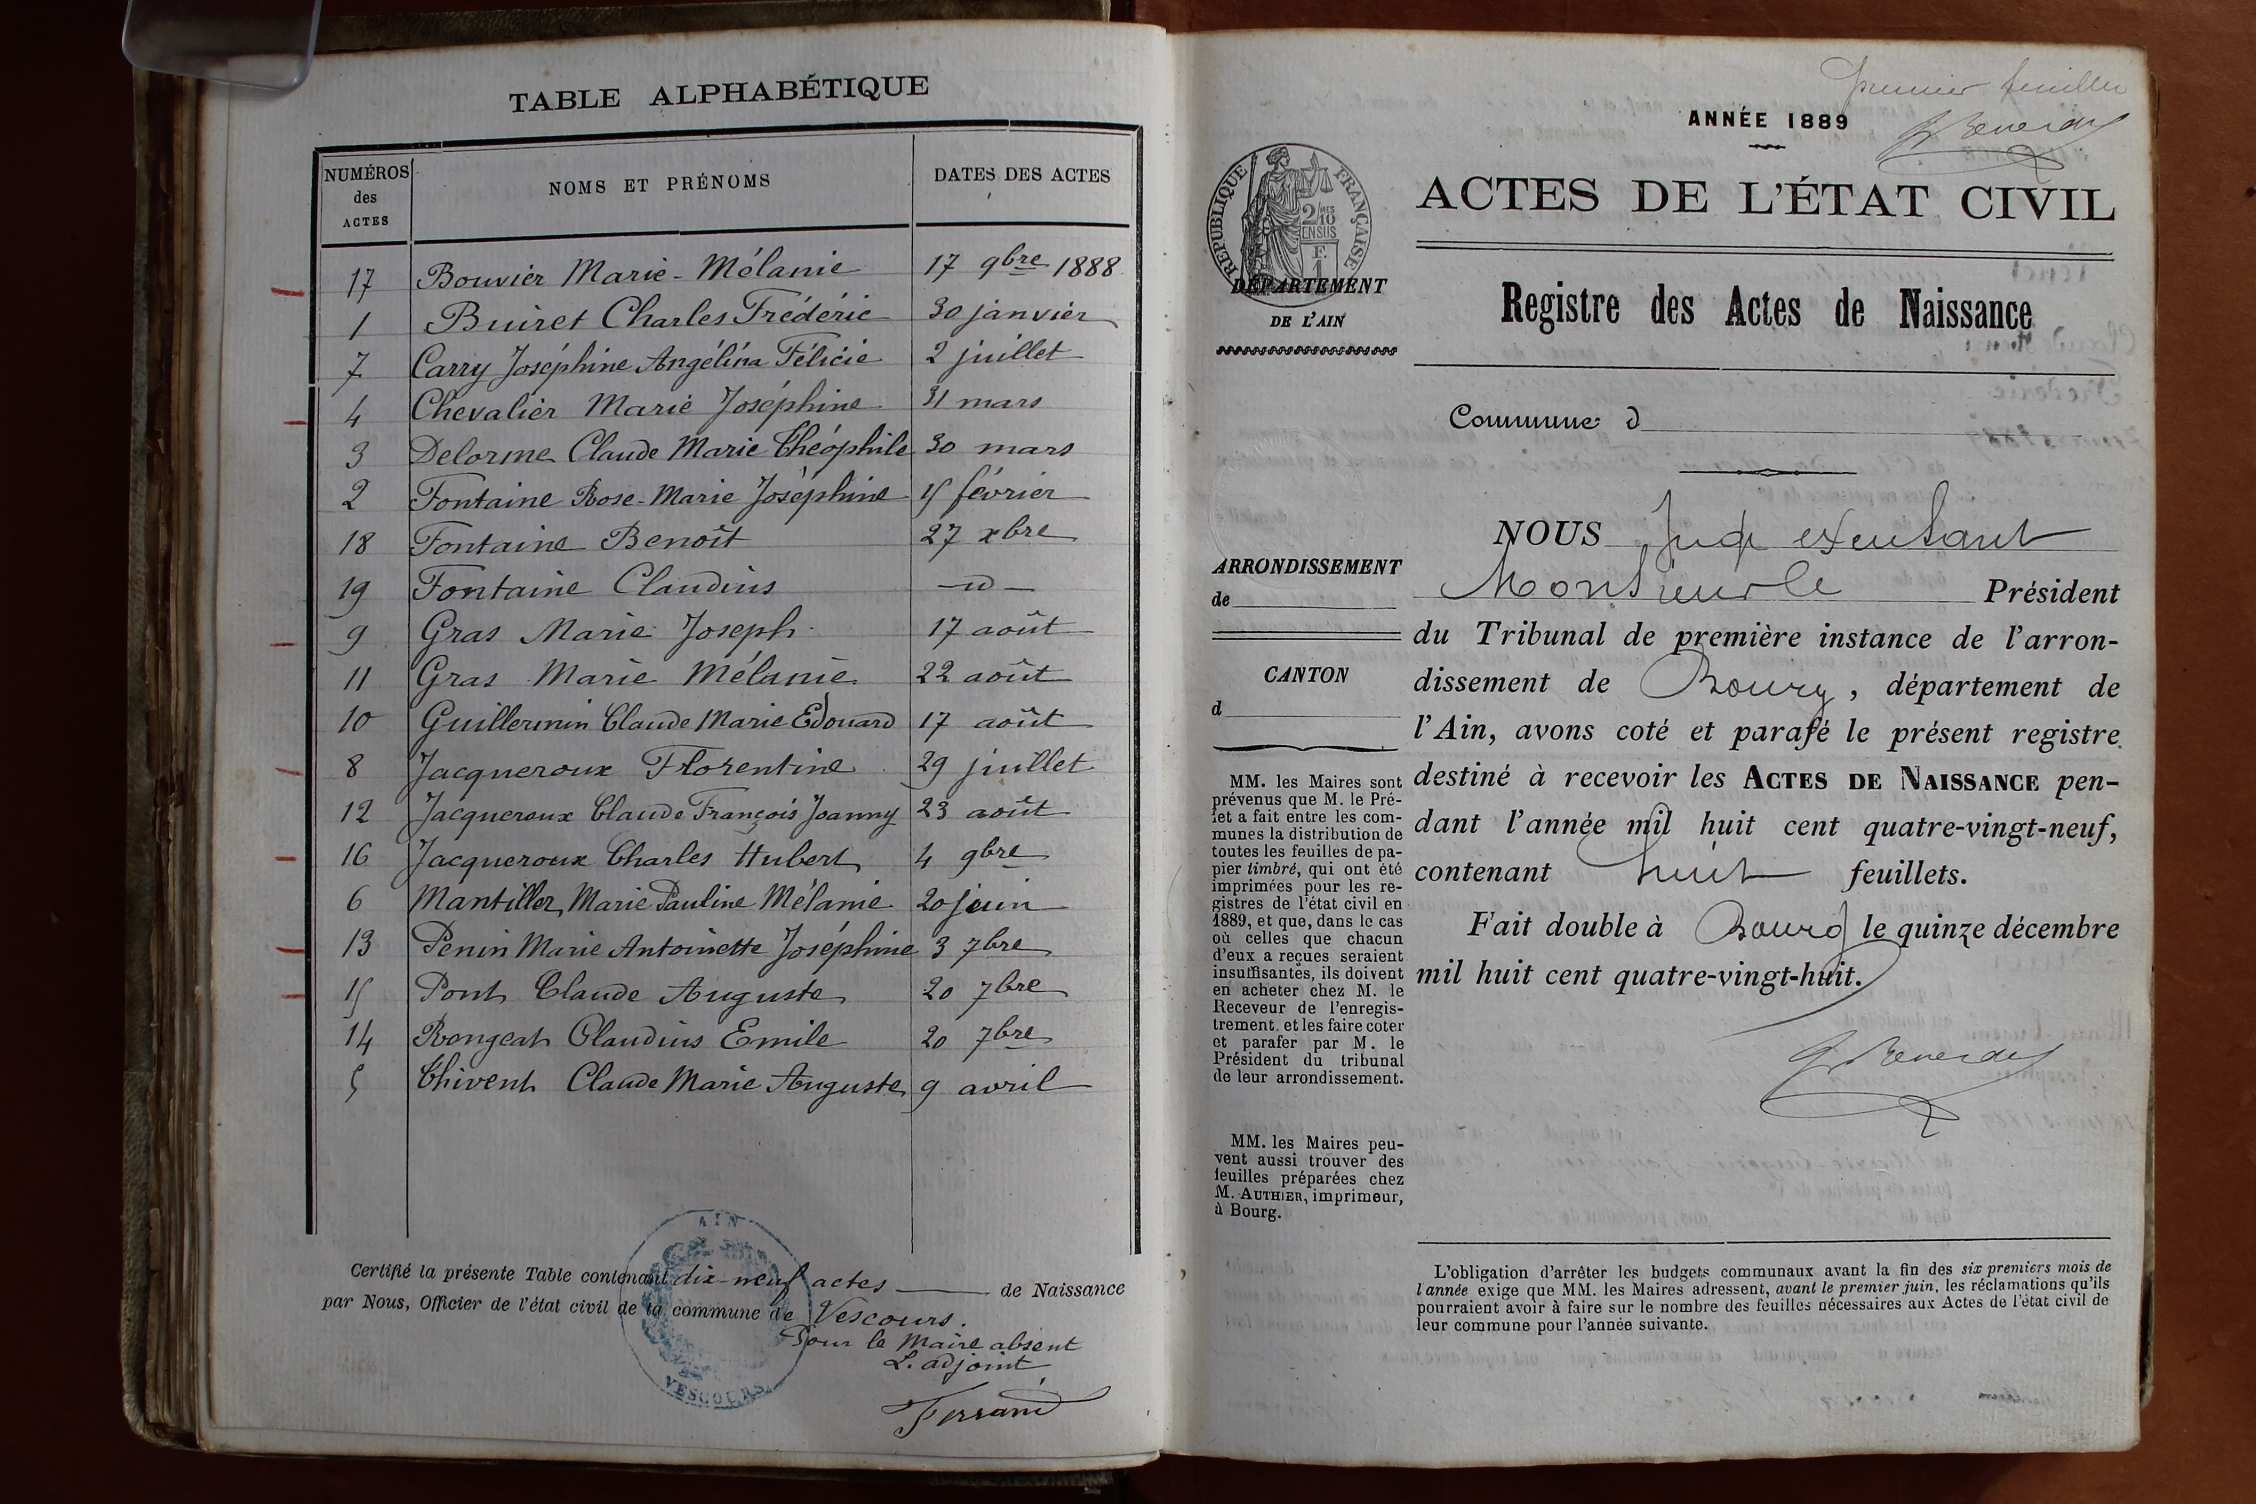 TABLE ALPHABÉTIQUE
NUMÉROS des ACTES NOMS ET PRÉNOMS DATES DES ACTES
17 Bouvier Marie-Mélanie 17 9bre 1888
1 Buiret Charles Frédéric 30 janvier
7 Carry Joséphine Angélina Félicie 2 juillet
4 Chevalier Marie Joséphine 31 mars
3 Delorme Claude Marie Théophile 30 mars
2 Fontaine Rose-Marie Joséphine 15 février
18 Fontaine Benoît 27 xbre
19 Fontaine Claudius —id—
9 Gras Marie Joseph 17 août
11 Gras Marie Mélanie 22 août
10 Guillermin Claude Marie Edouard 17 août
8 Jacqueroux Florentine 29 juillet
12 Jacqueroux Claude François Joanny 23 août
16 Jacqueroux Charles Hubert 4 9bre
6 Mantiller Marie Pauline Mélanie 20 juin
13 Penin Marie Antoinette Joséphine 3 7bre
15 Pont Claude Auguste 20 7bre
14 Rongeat Claudius Emile 20 7bre
5 Thivent Claude Marie Auguste 9 avril
Certifié la présente Table contenant dix-neuf actes de Naissance
par Nous, Officier de l'état civil de la commune de Vescours.
Pour le Maire absent
L'adjoint
Ferrand
AIN
VESCOURS
premier feuillet
ANNÉE 1889
RÉPUBLIQUE FRANÇAISE
2/10 EN SUS
F. 1
ACTES DE L'ÉTAT CIVIL
DÉPARTEMENT
DE L'AIN
Registre des Actes de Naissance
Commune d
ARRONDISSEMENT
de
CANTON
d
MM. les Maires sont
prévenus que M. le Pré-
fet a fait entre les com-
munes la distribution de
toutes les feuilles de pa-
pier timbré, qui ont été
imprimées pour les re-
gistres de l'état civil en
1889, et que, dans le cas
où celles que chacun
d'eux a reçues seraient
insuffisantes, ils doivent
en acheter chez M. le
Receveur de l'enregis-
trement, et les faire coter
et parafer par M. le
Président du tribunal
de leur arrondissement.
MM. les Maires peu-
vent aussi trouver des
feuilles préparées chez
M. AUTHIER, imprimeur,
à Bourg.
NOUS Juge exerçant
Monsieur le Président
du Tribunal de première instance de l'arron-
dissement de Bourg, département de
l'Ain, avons coté et parafé le présent registre
destiné à recevoir les ACTES DE NAISSANCE pen-
dant l'année mil huit cent quatre-vingt-neuf,
contenant huit feuillets.
Fait double à Bourg le quinze décembre
mil huit cent quatre-vingt-huit.
L'obligation d'arrêter les budgets communaux avant la fin des six premiers mois de
l'année exige que MM. les Maires adressent, avant le premier juin, les réclamations qu'ils
pourraient avoir à faire sur le nombre des feuilles nécessaires aux Actes de l'état civil de
leur commune pour l'année suivante.